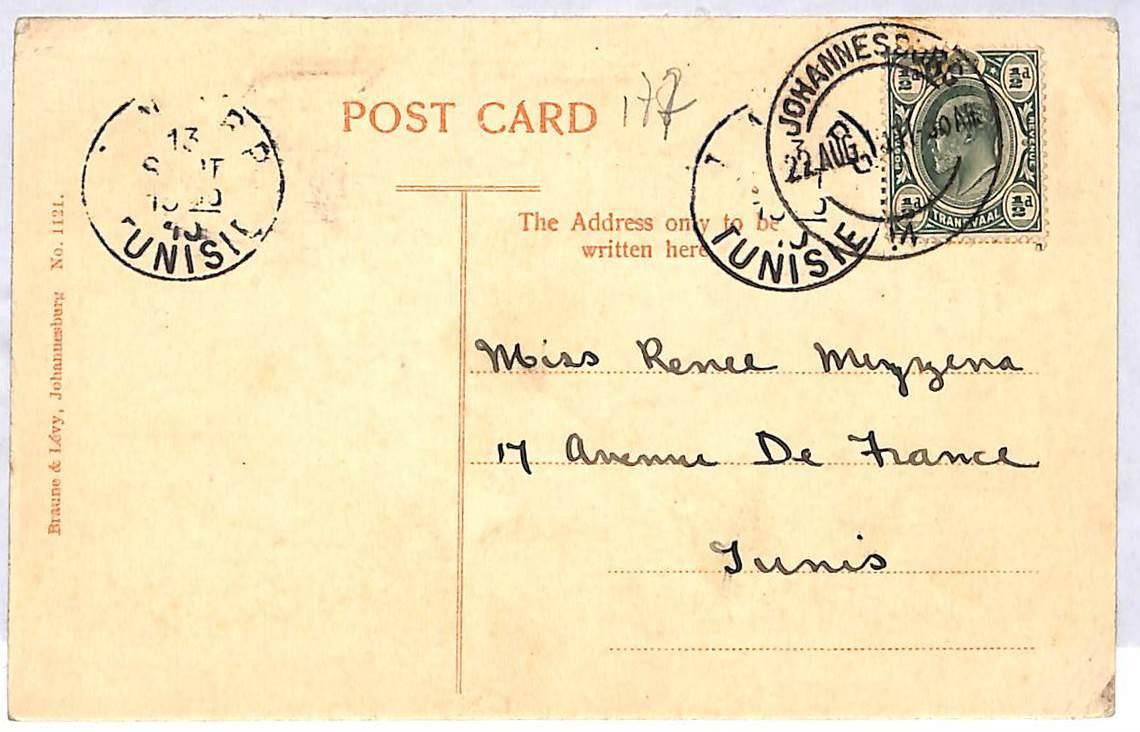 POST CARD
The Address only to be
written here
Miss Renee Mezzena
17 Avenue De France
Tunis
Braune & Lévy, Johannesburg No. 1121.
JOHANNESBURG
22 AUG
TRANSVAAL
½d
½d
½d
½d
POSTAGE
REVENUE
TUNISIE
13
TUNISIE